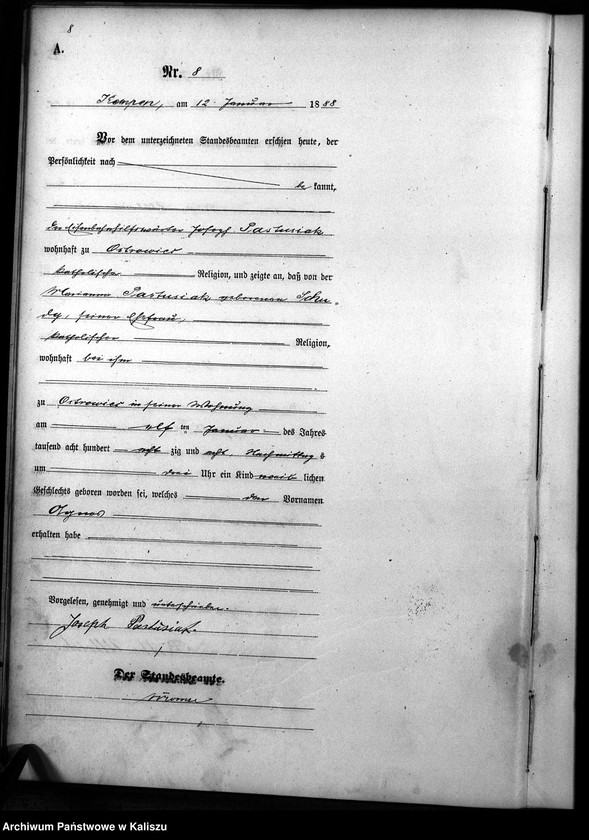 8
A.
Nr. 8
Kempen, am 12. Januar 1888
Vor dem unterzeichneten Standesbeamten erschien heute, der
Persönlichkeit nach
be kannt,
der Eisenbahnhilfswärter Joseph Pastusiak
wohnhaft zu Ostrowiec
katholischer Religion, und zeigte an, daß von der
Marianna Pastusiak geborenen
seiner Ehefrau,
katholischer Religion,
wohnhaft bei ihm
zu Ostrowiec in seiner Wohnung
am elf ten Januar des Jahres
tausend acht hundert acht zig und acht, Nachmittag s
um drei Uhr ein Kind weib lichen
Geschlechts geboren worden sei, welches den Vornamen
Agnes
erhalten habe
Vorgelesen, genehmigt und unterschrieben.
Joseph Pastusiak.
Der Standesbeamte.
Archiwum Państwowe w Kaliszu